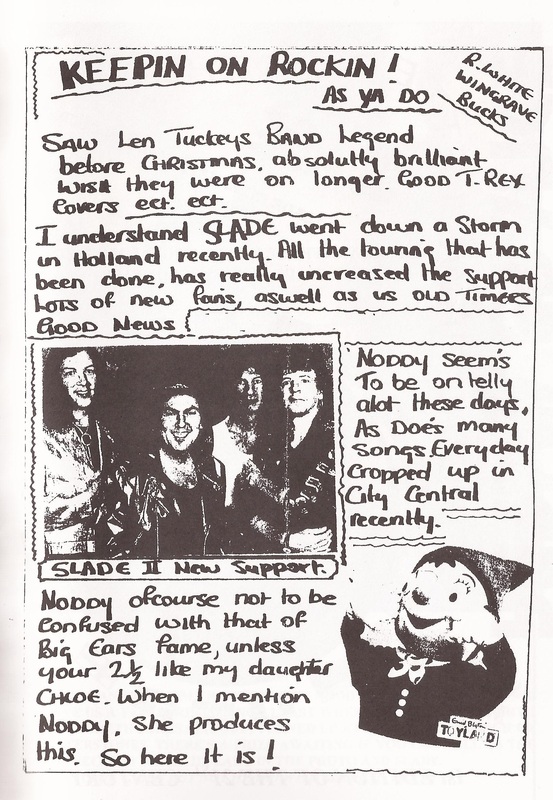 KEEPIN ON ROCKIN!
AS YA DO
R. WHITE
WINGRAVE
BUCKS
Saw Len Tuckeys BAND Legend
before CHRISTMAS, absolutly brilliant
wish they were on longer. GOOD T.REX
Covers ect. ect.
I understand SLADE went down a Storm
in Holland recently. All the touring that has
been done, has really increased the support
Lots of new fans, aswell as us OLD TIMERS
GOOD NEWS
NODDY seem's
To be on telly
alot these days,
As Doe's many
Songs. Everyday
Cropped up in
City Central
recently.
SLADE II New Support.
NODDY ofcourse not to be
confused with that of
Big Ears fame, unless
your 2½ like my daughter
CHLOE. When I mention
NODDY, She produces
this. So here It is!
Enid Blyton
TOYLAND